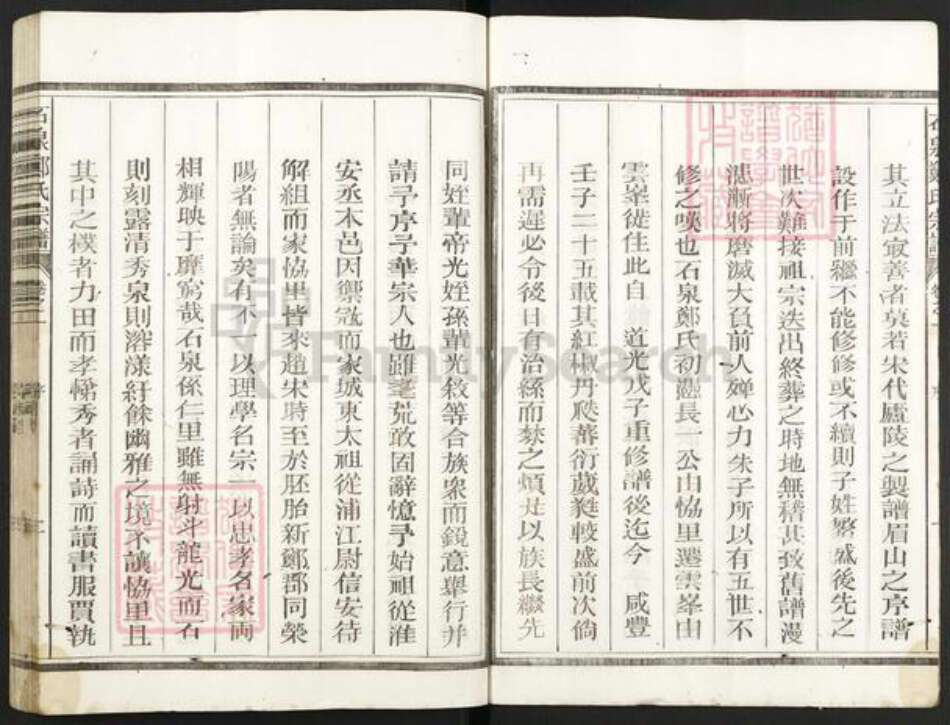 其立法寂善者莫若宋代廬陵之製譜眉山之序譜
設作于前繼不能修修或不續則子姓繁然後先之
世次難接祖宗迭出終葬之時地無稽甚致舊譜漫
漶漸將磨滅大負前人殫心力朱子所以有五世不
修之嘆也石泉鄭氏初遷長一公由恊里遷雲峯由
雲峯徙住此自 道光戊子重修譜後迄今 咸豐
壬子二十五載其紅椒丹荔蕃衍葳蕤較盛前次倘
再需遲必令後日有治絲而棼之煩是以族長繼先
同姪輩帝光姪孫輩光敘等合族衆而鏡意舉行并
請予序予華宗人也雖耄荒敢固辭憶予始祖從淮
安丞本邑因禦寇而家城東太祖從浦江尉信安待
解組而家恊里皆來趙宋時至於胚胎新鄭郡同榮
陽者無論矣有不 以理學名宗一以忠孝名家兩
相輝映于靡窮哉石泉係仁里雖無射斗龍光而石
則刻露清秀泉則溶漾紆餘幽雅之境不讓恊里且
其中之樸者力田而孝悌秀者誦詩而讀書服賈執
石泉鄭氏宗譜 卷之一 序